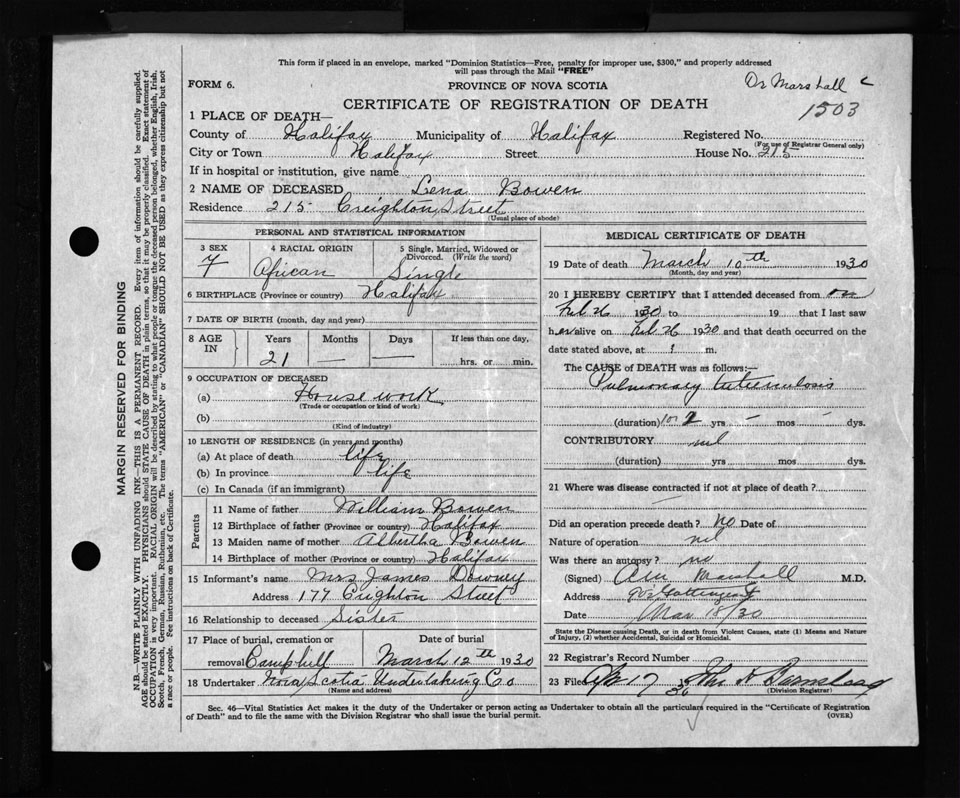 This form if placed in an envelope, marked "Dominion Statistics—Free, penalty for improper use, $300," and properly addressed
will pass through the Mail "FREE"
FORM 6.
PROVINCE OF NOVA SCOTIA
Dr Marshall
1503
CERTIFICATE OF REGISTRATION OF DEATH
1 PLACE OF DEATH—
County of Halifax Municipality of Halifax Registered No.
(For use of Registrar General only)
City or Town Halifax Street House No. 215
If in hospital or institution, give name
2 NAME OF DECEASED Lena Bowen
Residence 215 Creighton Street
(Usual place of abode)
PERSONAL AND STATISTICAL INFORMATION
3 SEX 4 RACIAL ORIGIN 5 Single, Married, Widowed or
Divorced. (Write the word)
F African Single
6 BIRTHPLACE (Province or country) Halifax
7 DATE OF BIRTH (month, day and year)
8 AGE IN Years Months Days If less than one day,
21 — — hrs. or min.
9 OCCUPATION OF DECEASED
(a) House work
(Trade or occupation or kind of work)
(b)
(Kind of industry)
10 LENGTH OF RESIDENCE (in years and months)
(a) At place of death life
(b) In province life
(c) In Canada (if an immigrant)
Parents
11 Name of father William Bowen
12 Birthplace of father (Province or country) Halifax
13 Maiden name of mother Albertha Bowen
14 Birthplace of mother (Province or country) Halifax
15 Informant's name Mrs James Downey
Address 177 Crighton Street
16 Relationship to deceased Sister
17 Place of burial, cremation or Date of burial
removal Camphill March 12th 1930
18 Undertaker Nova Scotia Undertaking Co
(Name and address)
MEDICAL CERTIFICATE OF DEATH
19 Date of death March 10th 1930
(Month, day and year)
20 I HEREBY CERTIFY that I attended deceased from on
Feb 26 1930 to 19 that I last saw
her alive on Feb 26 1930 and that death occurred on the
date stated above, at 1 m.
The CAUSE of DEATH was as follows:—
Pulmonary tuberculosis
(duration) 1 or 2 yrs — mos — dys.
CONTRIBUTORY nil
(duration) yrs mos dys.
21 Where was disease contracted if not at place of death?
—
Did an operation precede death? no Date of
Nature of operation nil
Was there an autopsy? no
(Signed) Marshall M.D.
Address Gottingen St
Date Mar 18/30
State the Disease causing Death, or in death from Violent Causes, state (1) Means and Nature
of Injury, (2) whether Accidental, Suicidal or Homicidal.
22 Registrar's Record Number
23 Filed 17 30
(Division Registrar)
Sec. 46—Vital Statistics Act makes it the duty of the Undertaker or person acting as Undertaker to obtain all the particulars required in the "Certificate of Registration
of Death" and to file the same with the Division Registrar who shall issue the burial permit.
(OVER)
MARGIN RESERVED FOR BINDING
N.B.—WRITE PLAINLY WITH UNFADING INK—THIS IS A PERMANENT RECORD. Every item of information should be carefully supplied.
AGE should be stated EXACTLY. PHYSICIANS should STATE CAUSE OF DEATH in plain terms, so that it may be properly classified. Exact statement of
OCCUPATION is very important. RACIAL ORIGIN will be described by stating to what people or tongue the deceased person belonged, whether English, Irish,
Scotch, French, German, Russian, Ruthenian, etc. The terms "AMERICAN" or "CANADIAN" SHOULD NOT BE USED as they express citizenship but not
a race or people. Fee instructions on back of Certificate.